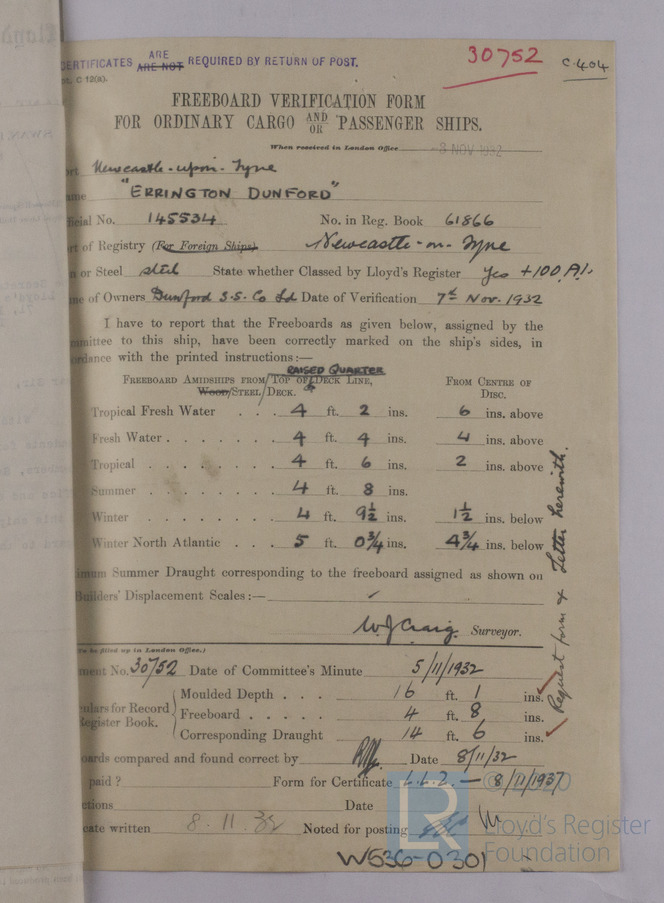 CERTIFICATES ARE ARE NOT REQUIRED BY RETURN OF POST.
30752
C.404
C 12(a).
FREEBOARD VERIFICATION FORM
FOR ORDINARY CARGO AND OR PASSENGER SHIPS.
When received in London Office 8 NOV 1932
Newcastle-upon-Tyne
"ERRINGTON DUNFORD"
No. 145534 No. in Reg. Book 61866
of Registry (For Foreign Ships) Newcastle-on-Tyne
or Steel steel State whether Classed by Lloyd's Register Yes +100.A1.
of Owners Dunford S.S. Co Ld Date of Verification 7th Nov. 1932
I have to report that the Freeboards as given below, assigned by the
mmittee to this ship, have been correctly marked on the ship's sides, in
rdance with the printed instructions:—
RAISED QUARTER
FREEBOARD AMIDSHIPS FROM TOP OF DECK LINE,
WOOD/STEEL/DECK.
FROM CENTRE OF
DISC.
Tropical Fresh Water . . . 4 ft. 2 ins. 6 ins. above
Fresh Water . . . . . . . 4 ft. 4 ins. 4 ins. above
Tropical . . . . . . . 4 ft. 6 ins. 2 ins. above
Summer . . . . . . . 4 ft. 8 ins.
Winter . . . . . . . 4 ft. 9½ ins. 1½ ins. below
Winter North Atlantic . . . 5 ft. 0¾ ins. 4¾ ins. below
imum Summer Draught corresponding to the freeboard assigned as shown on
Builders' Displacement Scales:—
W J Craig. Surveyor.
Request form & Letter herewith.
to be filled up in London Office.)
ment No. 30752 Date of Committee's Minute 5/11/1932
ulars for Record
Register Book.
Moulded Depth . . . 16 ft. 1 ins.
Freeboard . . . . . 4 ft. 8 ins.
Corresponding Draught 14 ft. 6 ins.
oards compared and found correct by Date 8/11/32
paid? Form for Certificate L.L.2. — 8/11/1937
ctions Date
cate written 8.11.32 Noted for posting
Lloyd's Register
Foundation
W536-0301